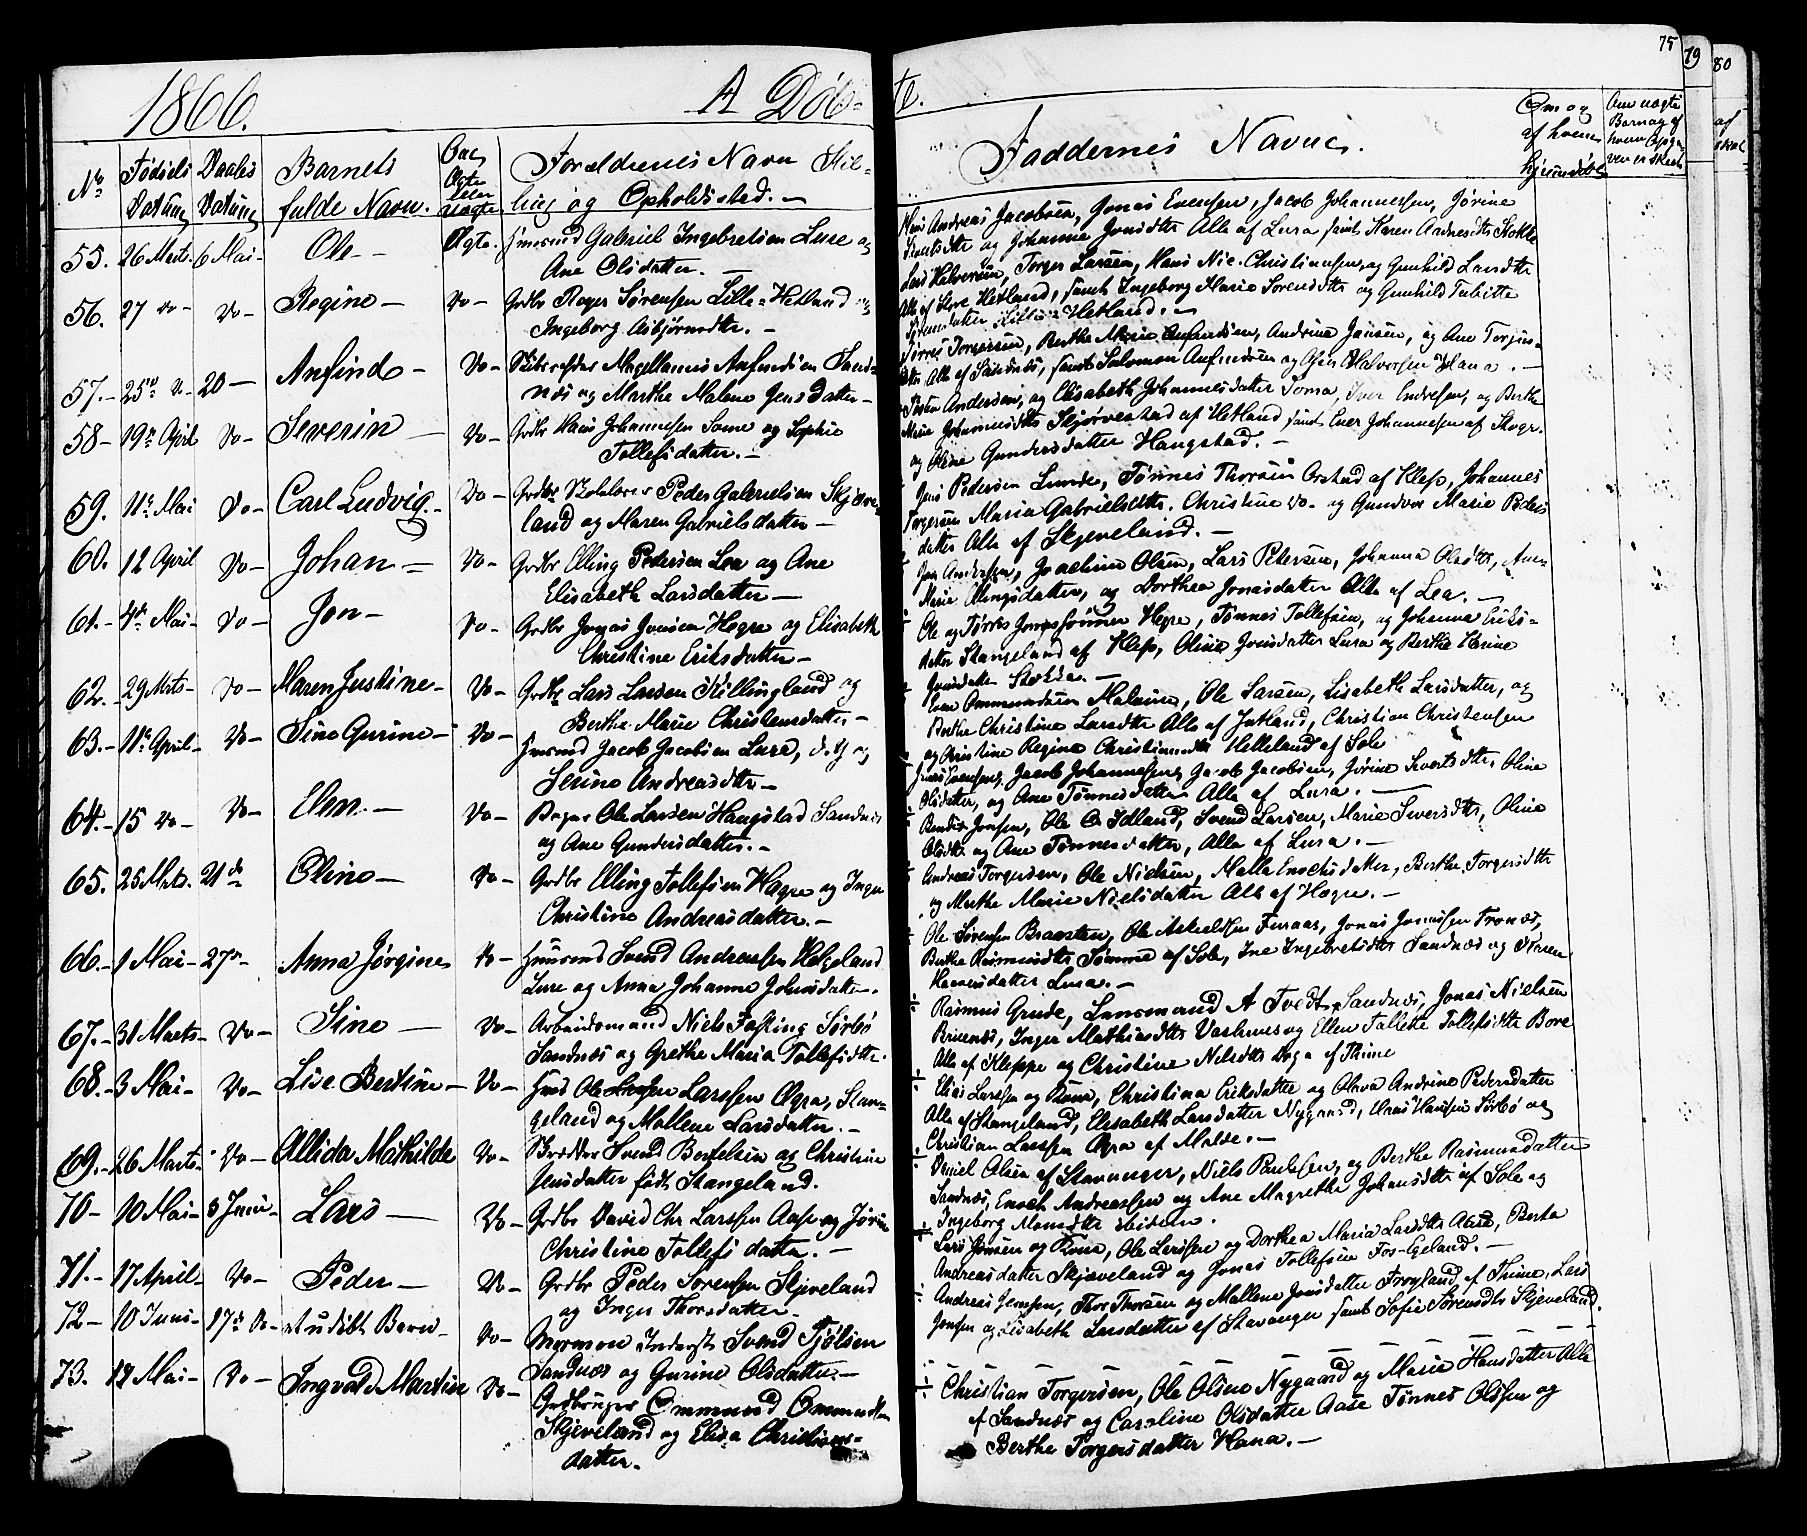 75 79 80
1866. A Døb- te.
No Fødsels Datum Daabs Datum Barnets fulde Navn. Om Ægte eller uægte Forældrenes Navn Stil-
ling og Opholdssted. -
Faddernes Navne. Om og af hvem hjemmedøbt Om uægte Barn og af hvem Opga-
ven er skeet
55. 26 Marts. 6 Mai - Ole - Ægte. Huusmd Gabriel Ingebretsen Lure og
Ane Olsdatter. -
56. 27 do - do - Regine - do - Grdbr Roger Sørensen Lille-Hetland og
Ingeborg Asbjørnsdtr. -
57. - 25 20 - Anfind - do - Magellanus Anfindsen Sand-
næs og Marthe Malene Jensdatter -
58 - 19 April do - Severin - do - Grdbr Hans Johannesen Some og Sophie
Tollefsdatter. -
59. 11 Mai do - Carl Ludvig. - do - Grdbr Skolelærer Peder Gabrielsen Skjæve-
land og Maren Gabrielsdatter -
60. 12 April do - Johan - do - Grdbr Elling Pedersen Lea og Ane
Elisabeth Larsdatter -
61. - 4 Mai - do - Jon - do - Grdbr Jonas Jonsen Hogre og Elisabeth
Christine Eriksdatter -
62. - 29 Mrts - do - Maren Justine - do - Grdbr Lars Larsen Killingland og
Berthe Marie Christensdatter -
63. - 11 April - do - Sine Gurine - do - Huusmd Jacob Jacobsen Lura, d. y og
Serine Andreasdtr -
64. - 15 do - do - Elen. - do - Bager Ole Larsen Haugstad Sandnes
og Ane Gundersdatter. -
65. 25 Mrts. 21 de Oline - do - Grdbr Elling Tollefsen Høgre og Inger
Christine Andreasdatter. -
66. - 1 Mai - 27 - Anna Jørgine do - Huusmd Svend Andreasen Helgeland
Lure og Anna Johanne Johnsdatter. -
67. - 31 Marts - do - Sine - do - Arbeidsmand Niels Fasting Sørbø
Sandnæs og Grethe Maria Tollefsdtr.
68. - 3 Mai - do - Lise Bertine - do - Hmd Ole Larsen Larssen Ogra, Stan-
geland og Mallene Larsdatter. -
69. - 26 Marts - do - Allida Mathilde do - Skrædder Svend Bertelsen og Christine
Jensdatter født Stangeland.
70 - 10 Mai - 3 Juni - Lars - do - Grdbr David Chr Larssen Aase og Jørine
Christine Tollefsdatter. -
71. - 17 April - do - Peder - do - Grdbr Peder Sorensen Skjeveland
og Inger Thorsdatter -
72 - 10 Juni - 17 do - et udøbt Barn - do - Mormon Inderst Svend Tjølsen
Sandnæs og Gurine Olsdatter -
73. 17 Mai - do - Ingvald Martin do - Grdbruger Ommund Ommundsen
Skjeveland og Elisa Christians-
datter. -
Hans Andreas Jacobsen, Jonas Evensen, Jacob Johannessen, Jørine
Sivertsdtr og Johanne Jonsdtr Alle af Lura samt Karen Andresdtr Stokke
Lars Halversen, Torger Larsen, Hans Nic. Christiansen, og Gunhild Larsdtr
Alle af Store Hetland, samt Ingeborg Marie Sorensdtr og Gunhild Tabitte
Sørensdatter Lille Hetland. -
Tørres Torgersen, Berthe Marie Anfindsen, Andrine Jansen, og Ane Torjus-
dtr Alle af Sandnæs, samt Salomon Anfindsen og Asser Halvorsen Hana. -
Peder Andersen, og Elisabeth Johannesdatter Soma, Iver Endresen, og Berthe
Marie Johannesdtr Skjørvestad af Hetland samt Enev Johannesen af Skogr.
og Oline Gundersdatter Haugstad. -
Jens Pedersen Lunde, Tønnes Thorsen Orstad af Klep, Johannes
Torgersen Maria Gabrielsdtr. Christine do - og Gundvor Marie Peders
datter Alle af Skjeveland. -
Jon Anderssen, Joachim Olsen, Lars Petersen, Johanna Olsdtr, Ane
Marie Ellingsdatter, og Dorthea Jonasdatter Alle af Lea. -
Ole og Tørres Jonassønner Høgre, Tønnes Tollefsen, og Johanna Eriks-
datter Stangeland af Klep, Oline Jonsdatter Lura og Berthe Karine
Jonsdatter Stokka. -
Even Ommundsen Malmin, Ole Larsen, Lisabeth Larsdatter, og
Berthe Christine Larsdtr Alle af Jatland, Christian Christensen
og Christine Regine Christiansdtr Helleland af Sole
Jonas Evensen, Jacob Johannesen, Jacob Jacobsen, Jørine Sivertsdtr, Oline
Olsdatter, og Ane Tønnesdatter Alle af Lura. -
Bendix Jonsen, Ole O Idland, Svend Larsen, Marie Siversdtr, Oline
Olsdtr og Ane Tønnesdatter, Alle af Lura. -
Andreas Torgersen, Ole Nielsen, Malla Enochsdatter, Berthe Torgersdtr
og Marthe Marie Nielsdatter Alle af Høgre. -
Ole Sørensen Braasten, Ole Askeldsen Furaas, Jonas Jonassen Tronæs,
Berthe Rasmusdtr Sømme af Sole, Ine Ingebretsdtr Sandnæs og Sirene
Hansdatter Lura. -
Rasmus Grude, Lensmand A Tvedt Sandnæs, Jonas Nielsen
Bruenæs, Inger Mathiasdtr Vashuus og Ellen Tallette Tollefsdtr Bore
Alle af Kleppe og Christine Nelsdtr Aga af Thime
Elias Larssen og Kone, Christina Eriksdatter og Oleva Andrine Pedersdatter
Alle af Stangeland, Elisabeth Larsdatter Nygaard, Hans Hansen Sørbø og
Christian Larssen Ogra af Malde. -
Daniel Olsen af Stavanger, Niels Paulsen, og Berthe Rasmusdatter
Sandnæs, Enoch Andreassen og Ane Magrethe Johansdtr af Sole og
Ingeborg Monsdtr ibidem.
Lars Jonsen og Kone, Ole Larssen og Dorthea Maria Larsdtr Aase, Berta
Andreasdatter Skjæveland og Jonas Tollefsen Fos-Egeland. -
Andreas Jenssen, Thor Thorsen og Mallene Jonsdatter Frøyland af Thime, Lars
Jonsen og Lisabeth Larsdatter af Stavanger samt Sofie Sørensdtr Skjeveland.
Christian Torgersen, Ole Olsen Nygaard og Marie Hansdatter Alle
af Sandnæs og Caroline Olsdatter Aase Tønnes Olssen og
Berthe Torgersdatter Hana. -